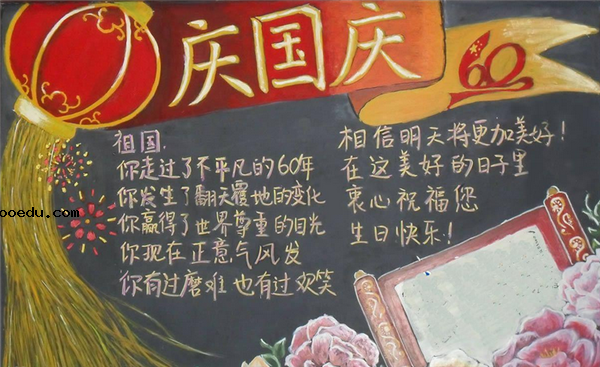 庆国庆
60
祖国.
你走过了不平凡的60年
你发生了翻天覆地的变化
你赢得了世界尊重的目光
你现在正意气风发
你有过磨难也有过欢笑
相信明天将更加美好!
在这美好的日子里
衷心祝福您
生日快乐!
ooedu.com